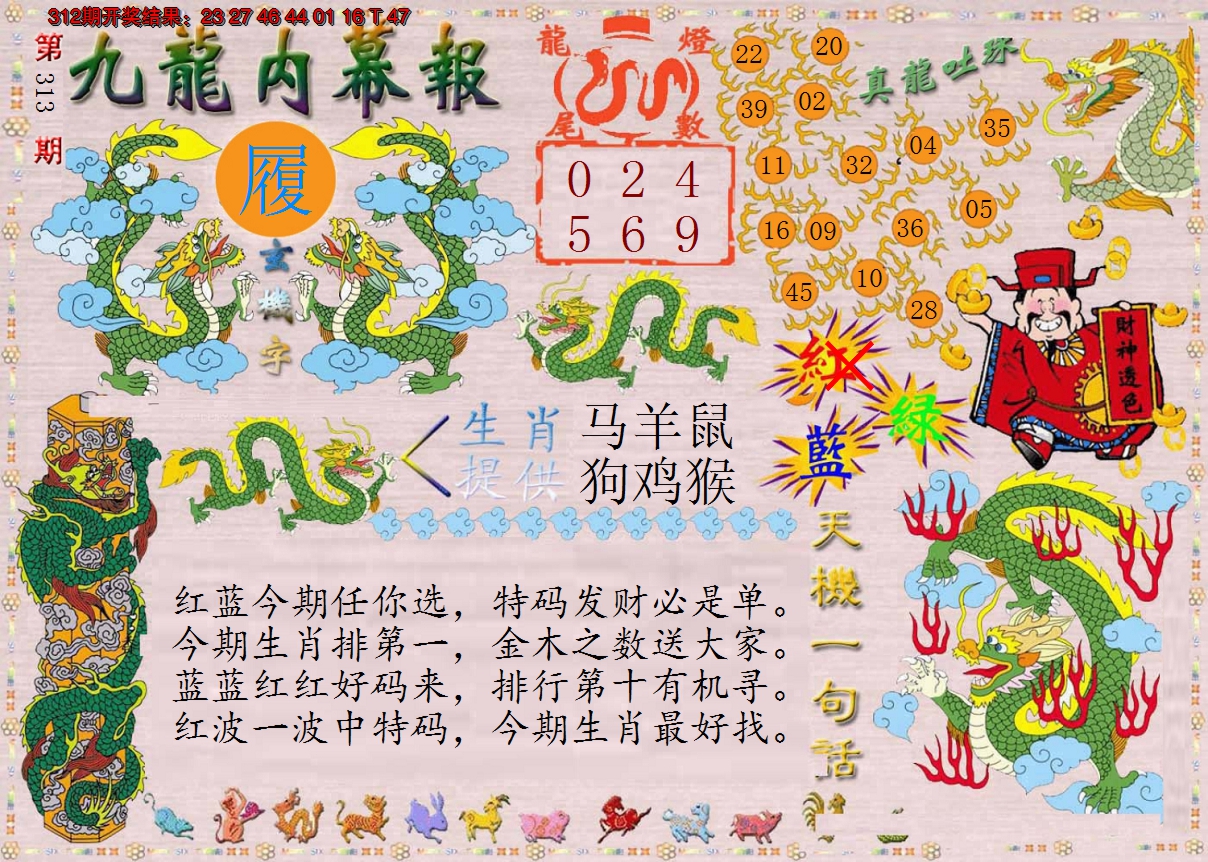 312期开奖结果：23 27 46 44 01 16 T 47
第313期
九龍内幕報
履
玄機字
龍燈
尾數
0 2 4
5 6 9
真龍吐珠
22 20
39 02
35
04
11 32
05
16 09 36
10
45
28
紅
綠
藍
財神透色
生肖
提供
马羊鼠
狗鸡猴
天機一句話
红蓝今期任你选，特码发财必是单。
今期生肖排第一，金木之数送大家。
蓝蓝红红好码来，排行第十有机寻。
红波一波中特码，今期生肖最好找。